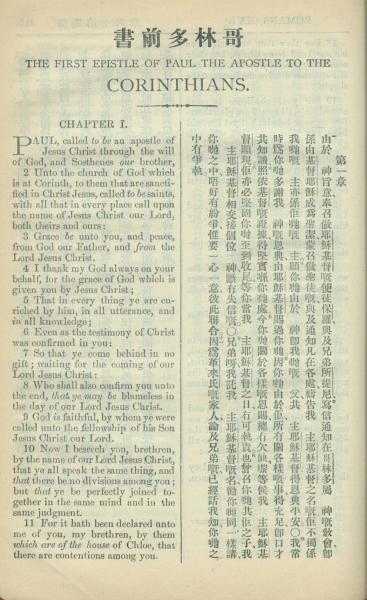 哥林多前書
THE FIRST EPISTLE OF PAUL THE APOSTLE TO THE
CORINTHIANS.
CHAPTER I.
PAUL, called to be an apostle of
Jesus Christ through the will
of God, and Sosthenes our brother,
2 Unto the church of God which
is at Corinth, to them that are sancti-
fied in Christ Jesus, called to be saints,
with all that in every place call upon
the name of Jesus Christ our Lord,
both theirs and ours:
3 Grace be unto you, and peace,
from God our Father, and from the
Lord Jesus Christ.
4 I thank my God always on your
behalf, for the grace of God which is
given you by Jesus Christ;
5 That in every thing ye are en-
riched by him, in all utterance, and
in all knowledge;
6 Even as the testimony of Christ
was confirmed in you:
7 So that ye come behind in no
gift; waiting for the coming of our
Lord Jesus Christ:
8 Who shall also confirm you unto
the end, that ye may be blameless in
the day of our Lord Jesus Christ.
9 God is faithful, by whom ye were
called unto the fellowship of his Son
Jesus Christ our Lord.
10 Now I beseech you, brethren,
by the name of our Lord Jesus Christ,
that ye all speak the same thing, and
that there be no divisions among you;
but that ye be perfectly joined to-
gether in the same mind and in the
same judgment.
11 For it hath been declared unto
me of you, my brethren, by them
which are of the house of Chloe, that
there are contentions among you.
第一章
由於 神旨意奉召做耶穌基督嘅使徒保羅與及兄弟所提尼寫信通知在哥林多屬 神嘅敎會卽
係由基督耶穌成爲聖潔蒙召做聖徒嘅及通知凡在各處禱告我 主耶穌基督之名嘅佢不獨係
我哋嘅 主亦係佢哋嘅 主願你哋由於 神卽我哋嘅 父共 主耶穌基督得恩典平安〇我常
時爲你哋多謝我 神嘅恩典由耶穌基督賜過你哋因你哋由於佢所有關各樣嘅事得充足卽口才
共知識照依基督嘅證據得堅實喺你哋處令你哋關於各樣嘅恩賜總冇欠缺等候我 主耶穌基
督顯現佢亦必堅固你哋至到收尾等你當我 主耶穌基督之日冇可執責嘅曾召你哋共佢之子我
主耶穌基督相交接個位 神冇失信嘅〇兄弟呀我託我 主耶穌基督嘅名勸你哋同一樣講
你哋之中唔好有紛爭惟要一心一意彼此聯合因爲革來氏嘅家人論及兄弟嘅已經話我知你哋之
中有爭執